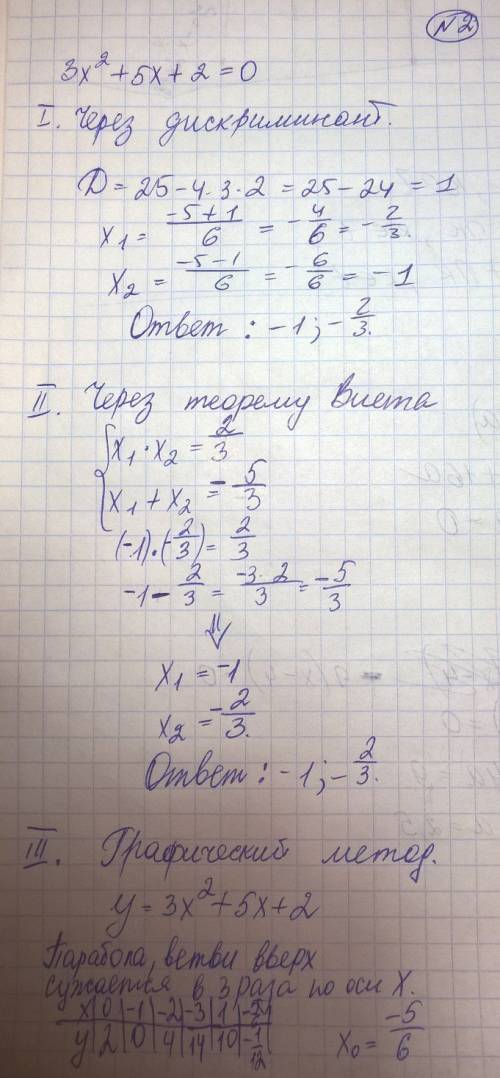 №2
3x²+5x+2=0
I. Через дискриминант.
D=25-4·3·2=25-24=1
x₁=(-5+1)/6=-4/6=-2/3.
x₂=(-5-1)/6=-6/6=-1
Ответ: -1; -2/3.
II. Через теорему Виета
{x₁·x₂=2/3
x₁+x₂=-5/3
(-1)·(-2/3)=2/3
-1-2/3=(-3·2)/3=-5/3
⇓
x₁=-1
x₂=-2/3.
Ответ: -1; -2/3.
III. Графический метод.
y=3x²+5x+2
Парабола, ветви вверх
сужается в 3 раза по оси X.
x|0|-1|-2|-3|1|
y|2|0|4|14|10|-1/12
x₀=-5/6